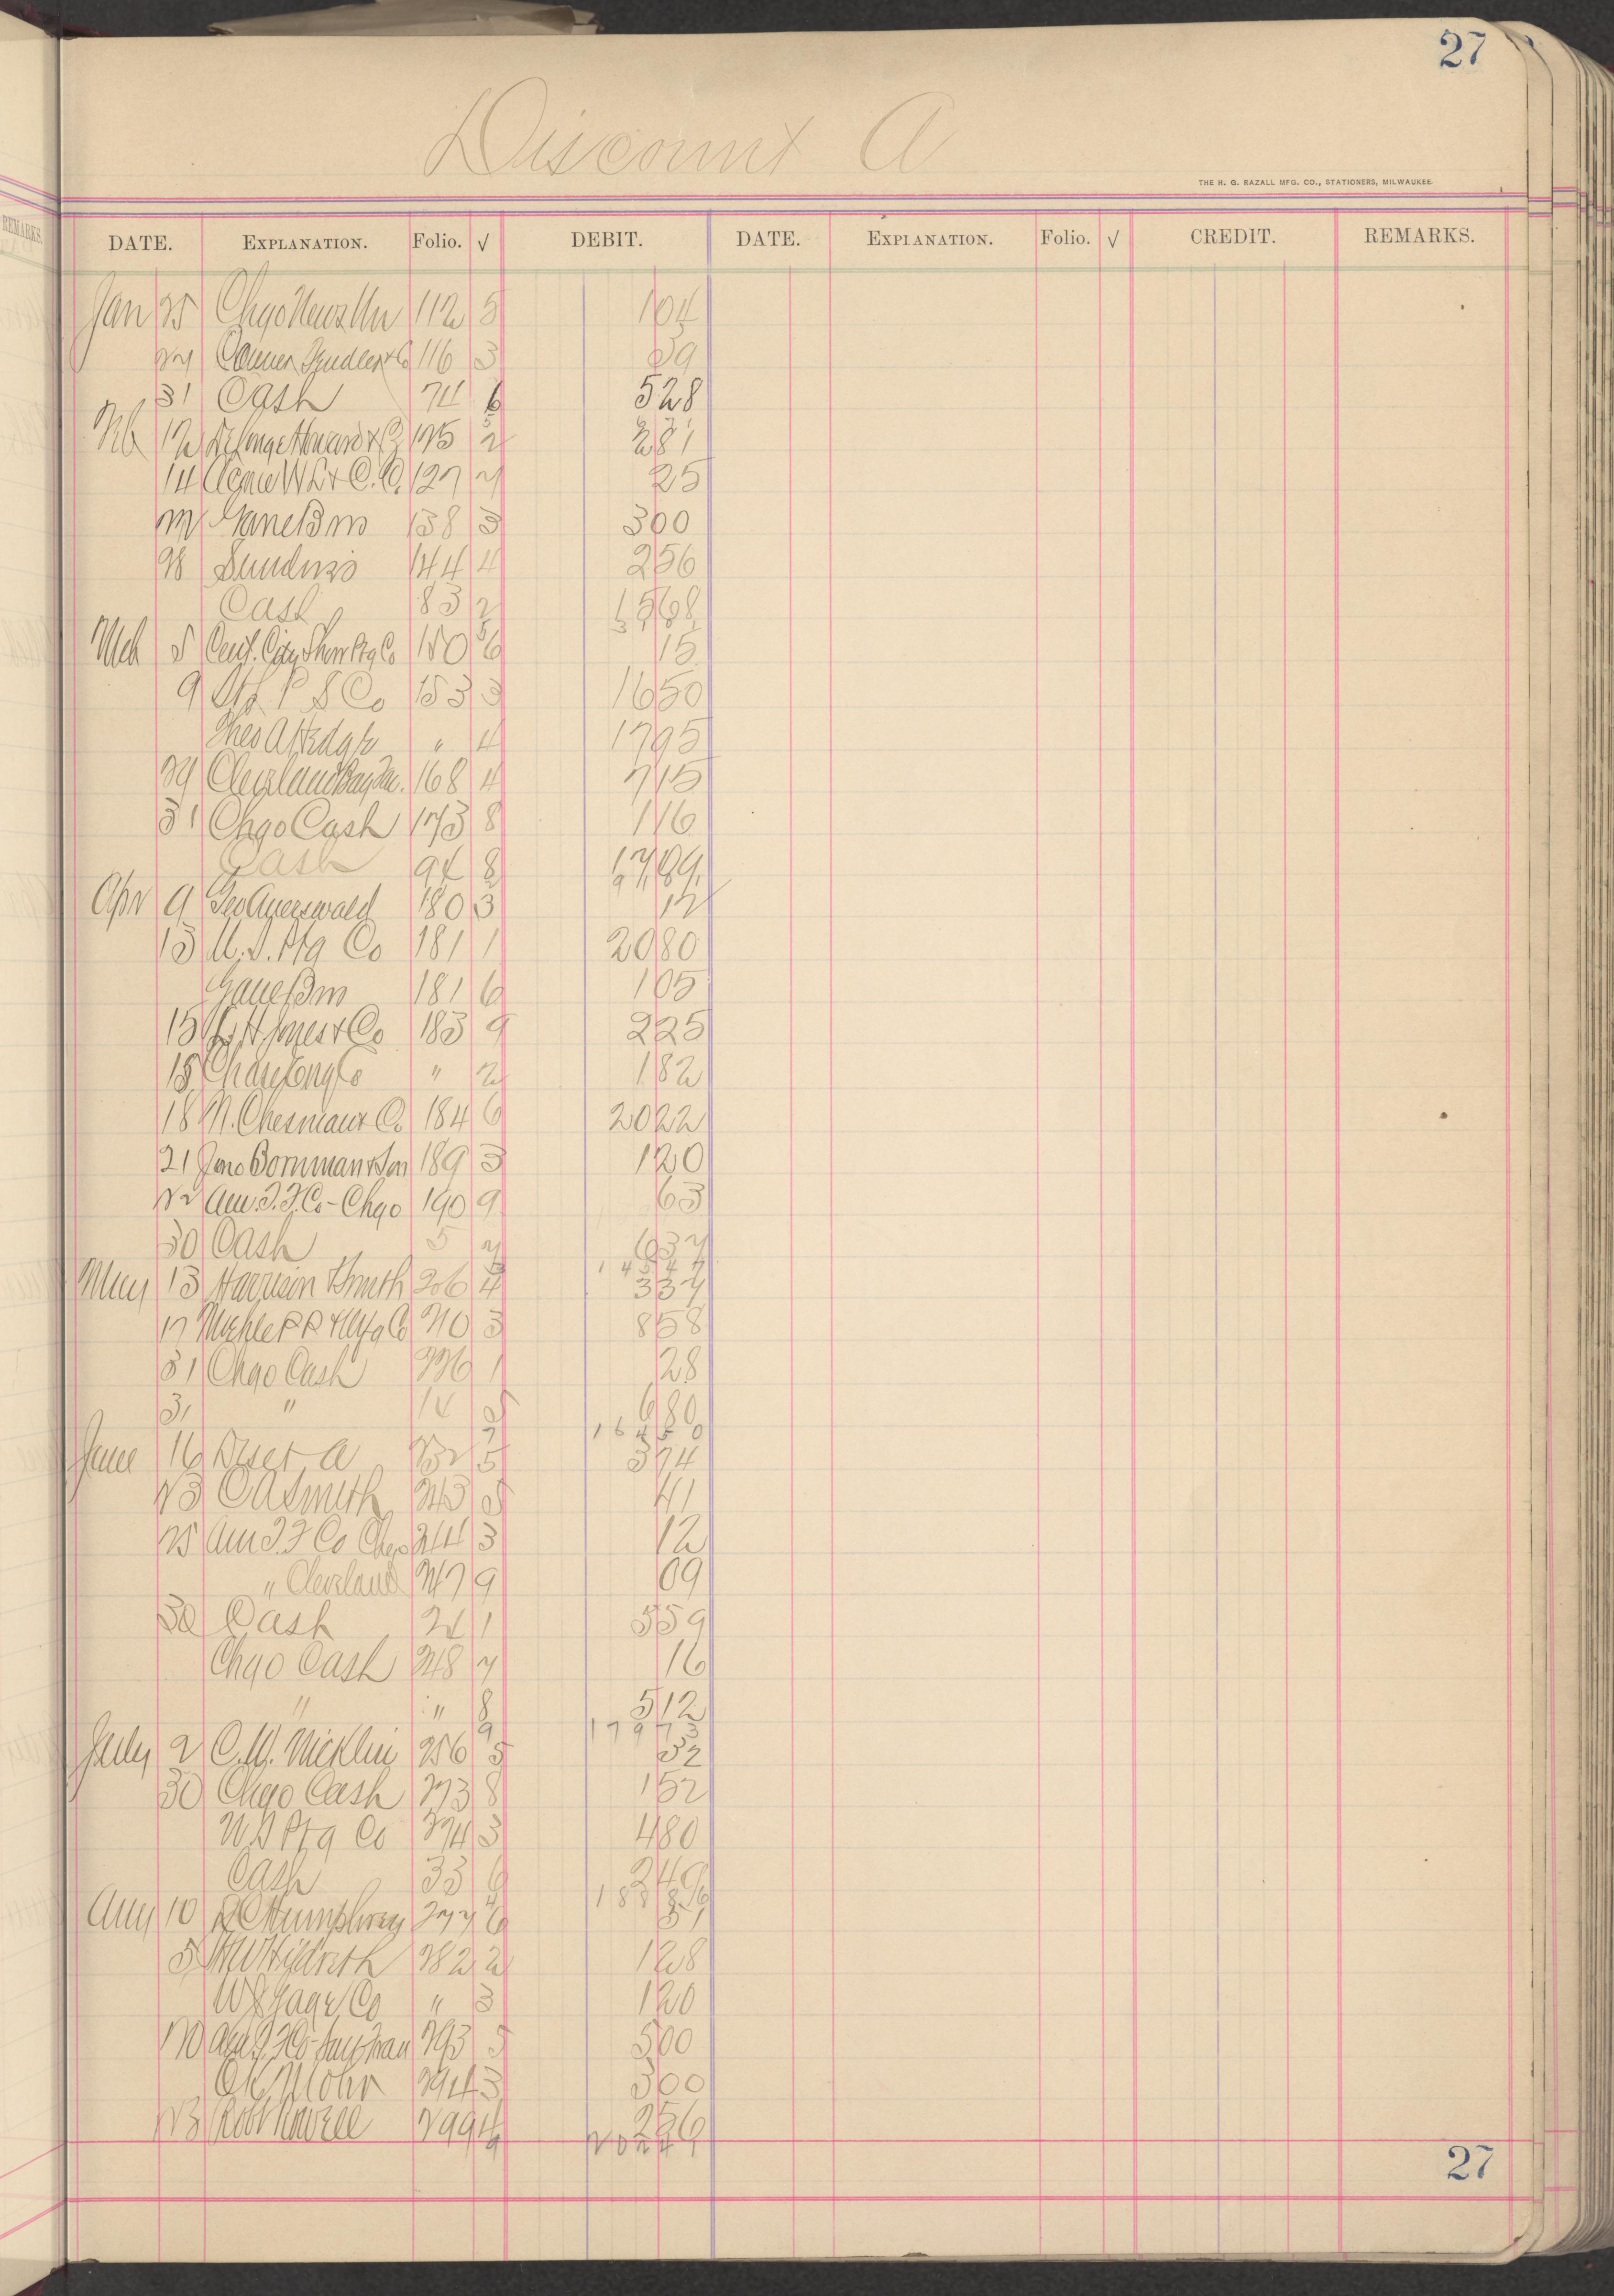 27
Discount A
THE H. G. RAZALL MFG. CO., STATIONERS, MILWAUKEE.
REMARKS.
DATE. EXPLANATION. Folio. √ DEBIT. DATE. EXPLANATION. Folio. √ CREDIT. REMARKS.
Jan 25 Chgo News Un 112 5 1 04
Conner Fendler & Co 116 3 39
31 Cash 74 6 5 28
Feb 12 Howard & Co 125 2 2 81
14 Acme W L & C. Co. 127 7 25
Gane Bros 138 3 3 00
28 Sundries 144 4 2 56
Cash 83 2 15 68
Mch 5 Cent. City Show Ptg Co 150 6 15
9 P S Co 153 3 16 50
Theo A " 4 17 95
29 Cleveland 168 4 7 15
31 Chgo Cash 173 8 1 16
Cash 94 8
Apr 9 Geo Auerswald 180 3 12
13 U. S. Ptg Co 181 1 20 80
Gane Bros 181 6 1 05
15 Jones & Co 183 9 2 25
18 Eng Co " 2 1 82
18 M. Chesman & Co 184 6 20 22
21 Jno Bornman & Son 189 3 1 20
22 Am. T. F. Co - Chgo 190 9 63
30 Cash 5 7 6 37
May 13 Harrison Smith 206 4 3 37
17 Miehle P P & Mfg Co 210 3 8 58
31 Chgo Cash 226 1 28
31 " 14 5 6 80
1 6 4 5 0
June 16 Disct A 232 5 3 74
23 C A Smith 243 5 41
25 Am T. F Co Chgo 244 3 12
" Cleveland 247 9 09
30 Cash 24 1 5 59
Chgo Cash 248 7 16
" " 8 5 12
1 7 9 7 3
July 2 C. W. Nicklin 256 5 32
30 Chgo Cash 273 8 1 52
U S Ptg Co 274 3 4 80
Cash 33 6 2 49
Aug 10 R C Humphrey 277 6
5 Hildreth 282 2 1 28
Gage Co " 3 1 20
20 Am T F Co - San Fran 293 5 5 00
Mohr 294 3 3 00
23 Robt Rowell 299 4 2 56
27